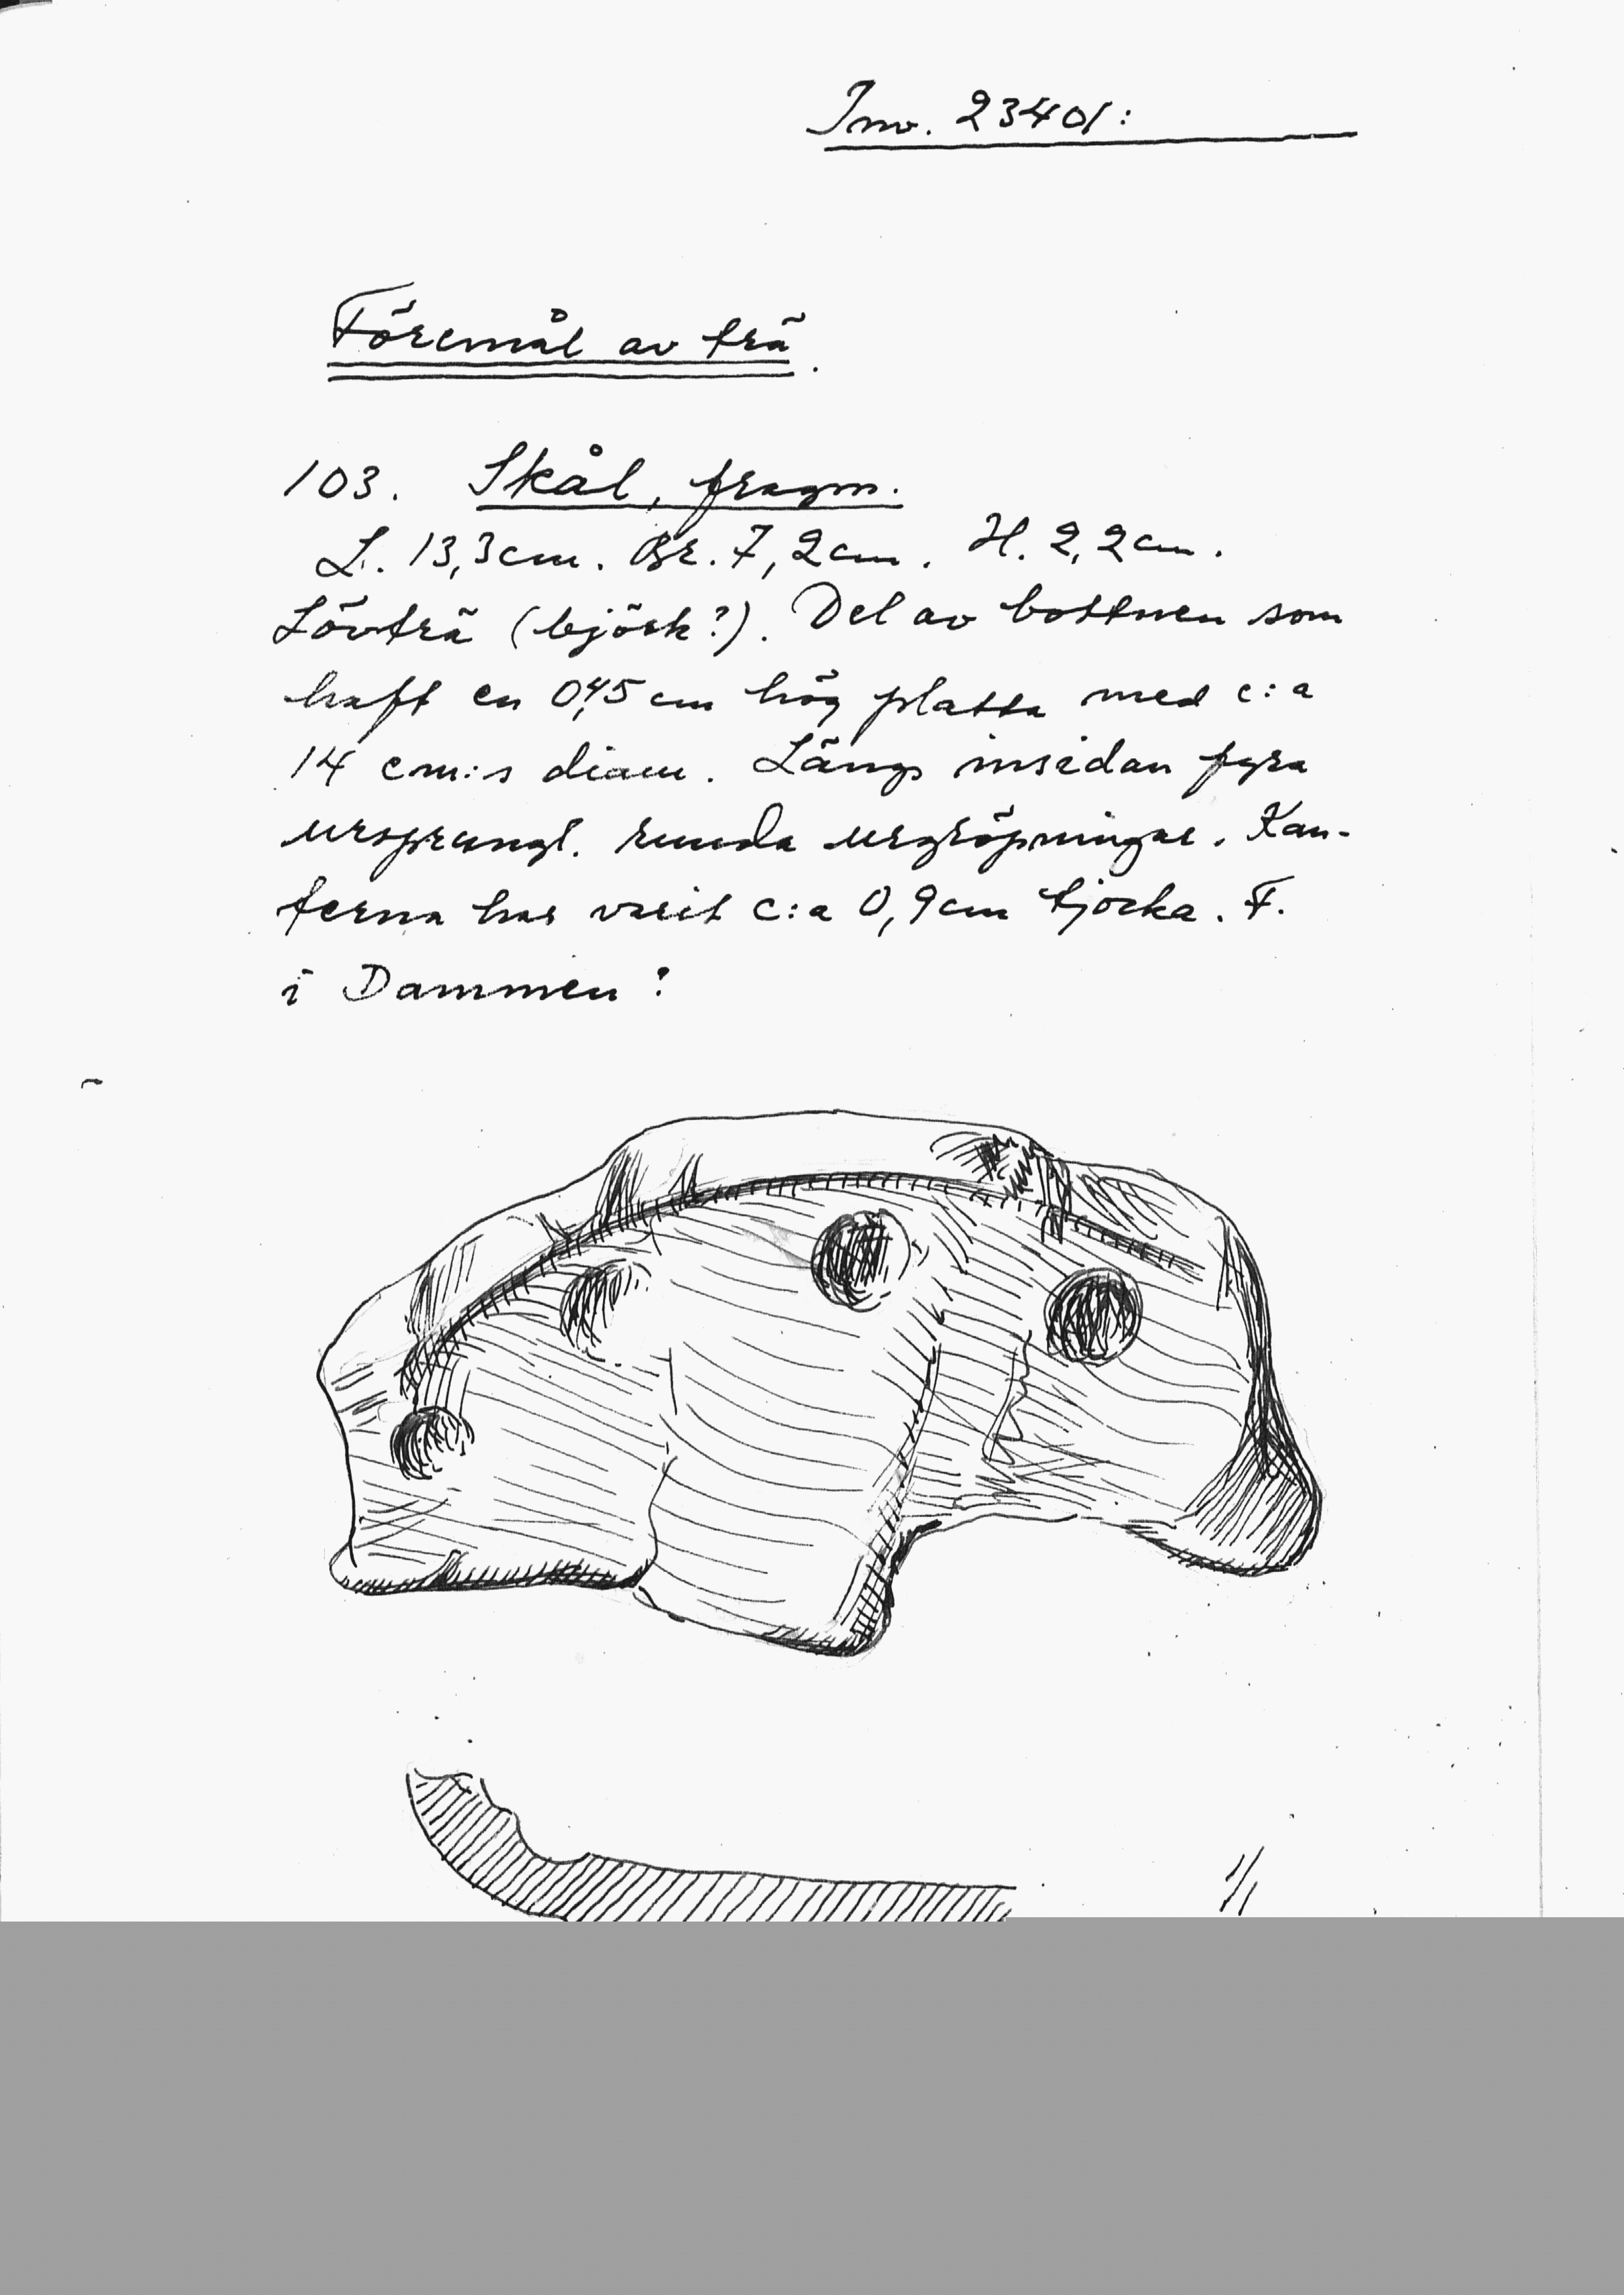 Inv. 23401:
Föremål av trä.
103. Skål, fragm.
L. 13,3cm. Br. 7,2cm. H. 2,2cm.
Lövträ (björk?). Del av bottnen som
haft en 0,45 cm hög platta med c:a
14 cm:s diam. Längs insidan fyra
ursprungl. runda urgröpningar. Kan-
terna har varit c:a 0,9cm tjocka. F.
i Dammen?
1/1